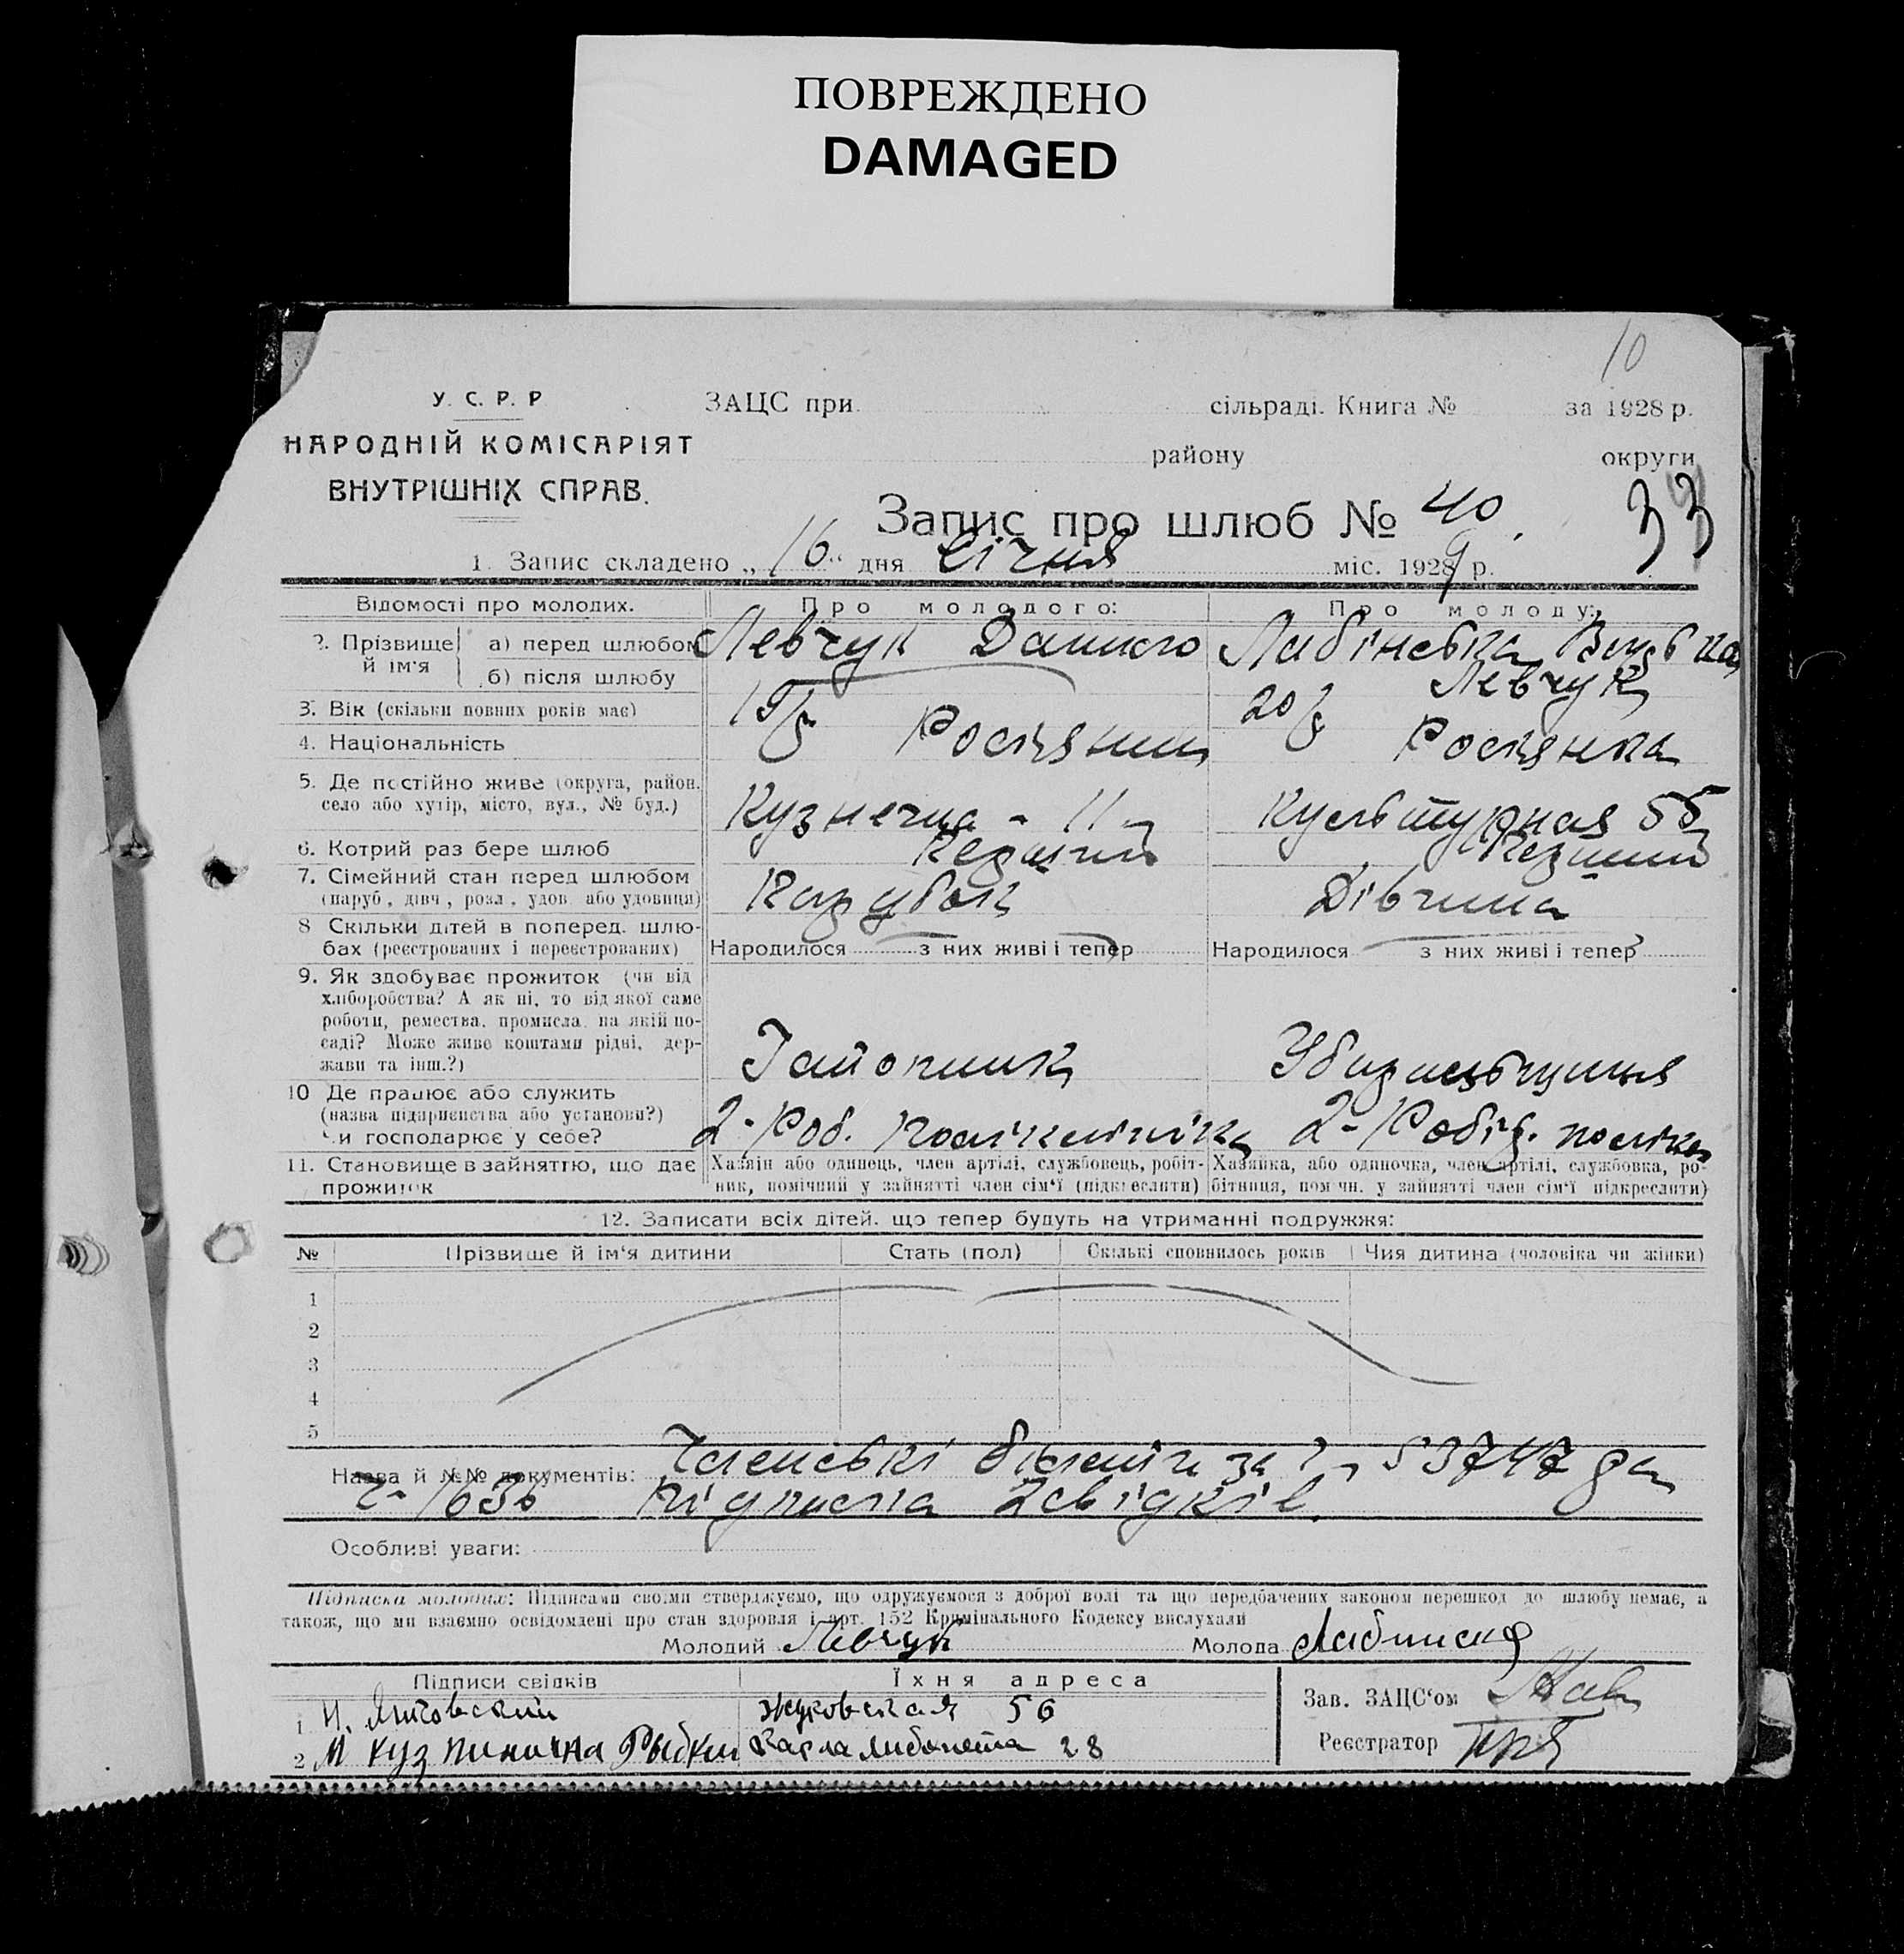 ПОВРЕЖДЕНО
DAMAGED
10
У. С. Р. Р
НАРОДНІЙ КОМІСАРІЯТ
ВНУТРІШНІХ СПРАВ.
ЗАЦС при сільраді. Книга № за 1928 р.
району округи
33
Запис про шлюб № 40
1. Запис складено „16“ дня Січня міс. 1929 р.
Відомості про молодих. Про молодого: Про молоду:
2. Прізвище й ім'я а) перед шлюбом Левчук Данило Лабінська
б) після шлюбу Левчук
3. Вік (скільки повних років має) 20
4. Національність Росіянин Росіянка
5. Де постійно живе (округа, район, село або хутір, місто, вул., № буд.) Кузнечна - 11 Культурная 55
6. Котрий раз бере шлюб Перший Перший
7. Сімейний стан перед шлюбом (паруб., дівч., розл., удов. або удовиця) Парубок Дівчина
8 Скільки дітей в поперед. шлюбах (реєстрованих і переєстрованих) Народилося з них живі і тепер Народилося з них живі і тепер
9. Як здобуває прожиток (чи від
хліборобства? А як ні, то від якої саме
роботи, ремества, промисла, на якій по-
саді? Може живе коштами рідні, дер-
жави та інш.?)
Убиральщиця
10 Де працює або служить
(назва підприємства або установи?)
Чи господарює у себе?
2-Роб. поліклініка 2-Робіт. полікл
11. Становище в зайняттю, що дає
прожиток
Хазяїн або одинець, член артілі, службовець, робіт-
ник, помічний у зайнятті член сім'ї (підкреслити)
Хазяйка, або одиночка, член артілі, службовка, ро-
бітниця, пом чн. у зайнятті член сім'ї підкреслити)
12. Записати всіх дітей, що тепер будуть на утриманні подружжя:
№ Прізвище й ім'я дитини Стать (пол) Скількі сповнилось років Чия дитина (чоловіка чи жінки)
1
2
3
4
5
Назва й №№ документів: Членські білети за 53747 да
1636 Підписка 2 свідків.
Особливі уваги:
Підписка молодих: Підписами своїми стверджуємо, що одружуємося з доброї волі та що передбачених законом перешкод до шлюбу немає, а
також, що ми взаємно освідомлені про стан здоровля і арт. 152 Кримінального Кодексу вислухали
Молодий Левчук Молода Лабинска
Підписи свідків Їхня адреса
1 Жуковская 56
2 М Куз Рыбки Карла Либкнехта 28
Зав. ЗАЦС'ом
Реєстратор